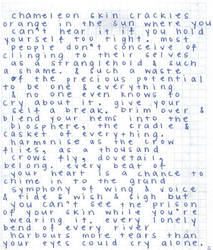 chameleon skin crackles
orange in the sun where you
can't hear it if you hold
yourself too tight. most
people don't conceive of
clinging to their selves
as a stranglehold & such
a shame. & such a waste
of the precious potential
to be one & everything.
& no one even knows to
cry about it. give your
self a break. brim over &
blend your hems into the
biosphere, the cradle &
casket of everything.
harmonise as the crow
flies, as a thousand
crows fly. dovetail.
belong. every beat of
your heart is a chance to
chime in to the grand
symphony of wing & voice
& tide & wish & sigh but
you can't see the prism
of your skin while you're
wearing it. every lonely
bend of every river
harbours more tears than
your eyes could cry alone.